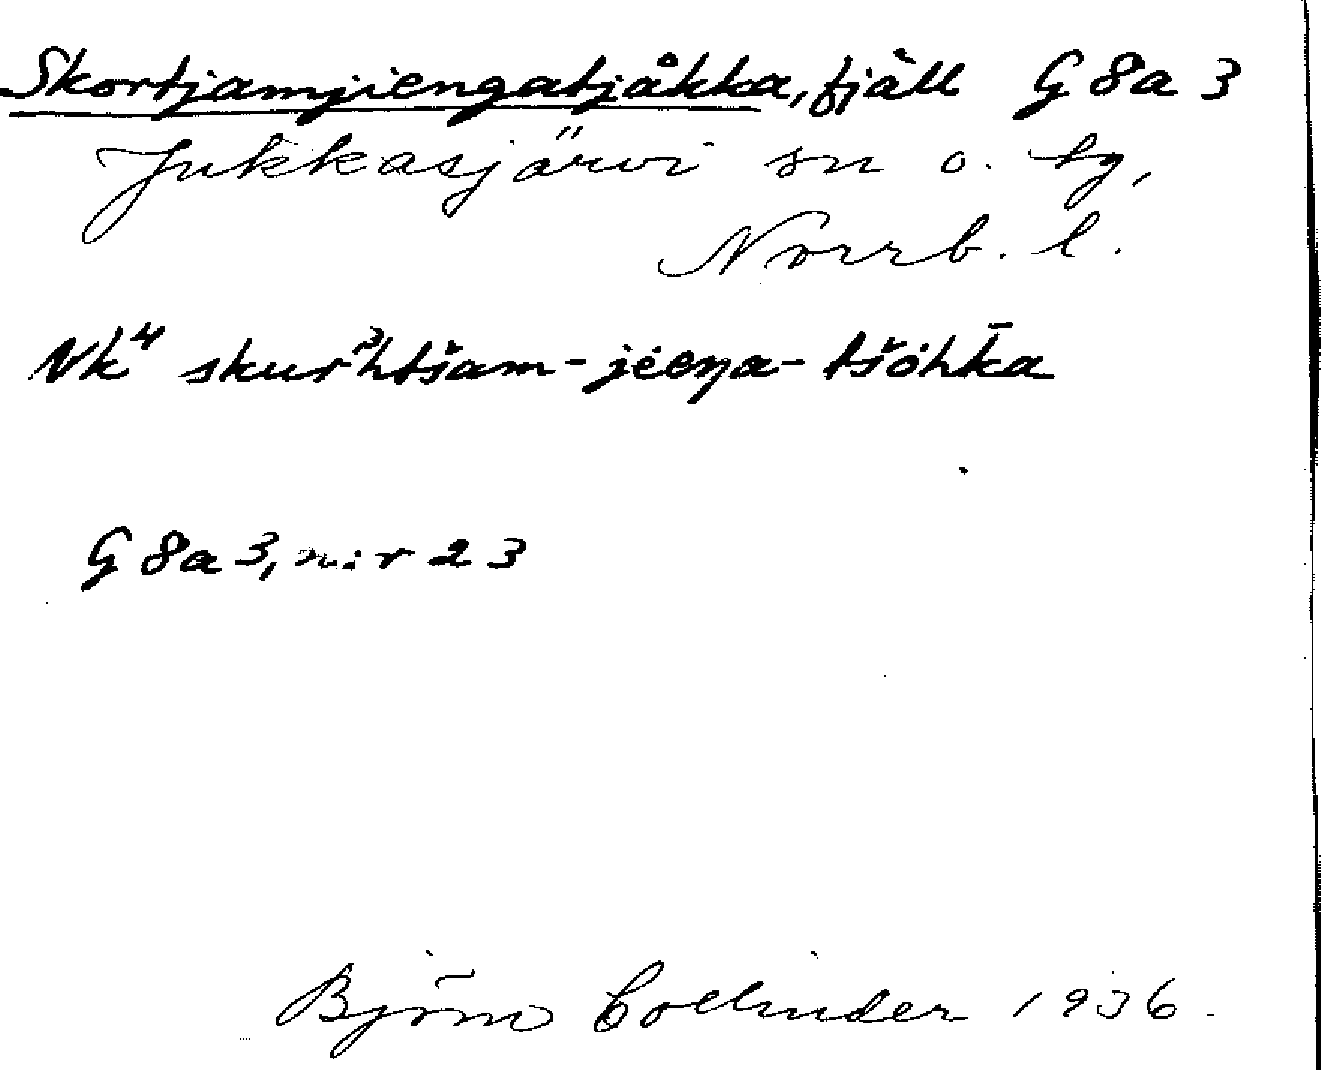 Skortjamjiengatjåkka, fjäll G 8a 3
Jukkasjärvi sn o. tg,
Norrb. l.
Nk⁴ skurᵌhtšam-jēeŋa-tšǒhk̄a
G 8a 3, n:r 23
Björn Collinder 1936.